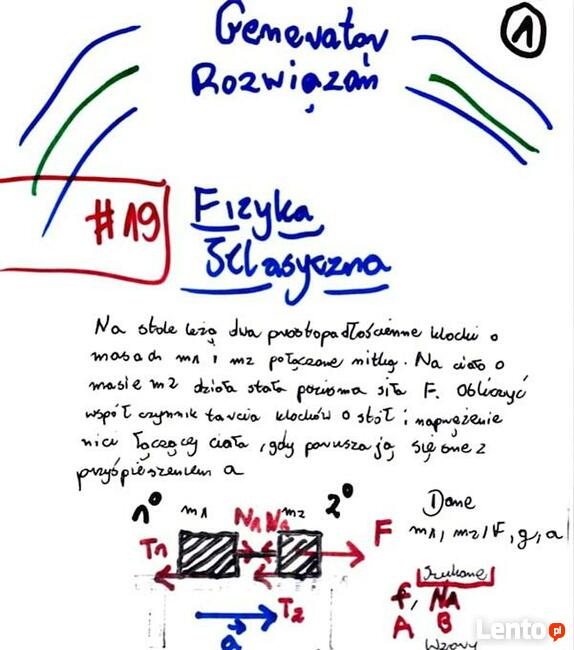 Generator
Rozwiązań
1
#19
Fizyka
Klasyczna
Na stole leżą dwa prostopadłościenne klocki o
masach m1 i m2 połączone nitką. Na ciało o
masie m2 działa stała pozioma siła F. Obliczyć
współczynnik tarcia klocków o stół i naprężenie
nici łączącej ciała, gdy poruszają się one z
przyśpieszeniem a
1° m1 N1 N1 m2 2°
T1 F
T2
a
Dane
m1, m2, F, g, a
Szukane
f, N1
A B
Wzory
Lento.pl